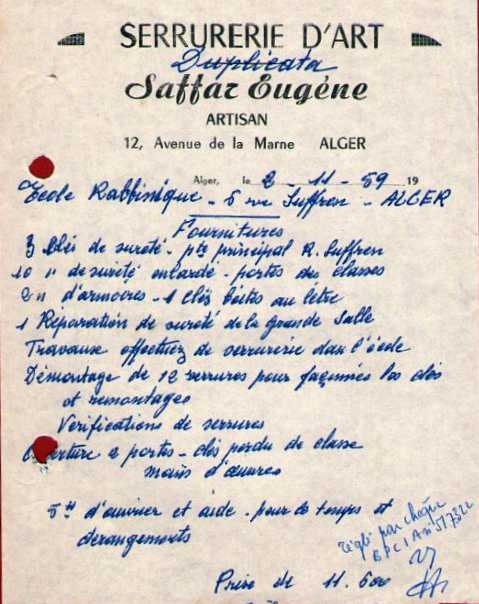 SERRURERIE D'ART
Duplicata
Saffar Eugène
ARTISAN
12, Avenue de la Marne ALGER
Alger, le 2 - 11 - 59 19
Ecole Rabbinique - 6 rue Suffren - ALGER
Fournitures
3 Clés de sureté - pte principal R. Suffren
10 " de sureté - portes des classes
2 " d'armoires - 1 clés boites au lètre
1 Réparation de sureté de la Grande Salle
Travaux effectuez de serrurerie dans l'école
Démontage de 12 serrures pour façonnées les clés
et remontages
Vérifications de serrures
Ouverture 2 portes - clés perdu de classe
mains d'œuvres
d'ouvrier et aide - pour le temps et
dérangements
réglé par chèque
BPCIA n° 517322
Prise de 11.600